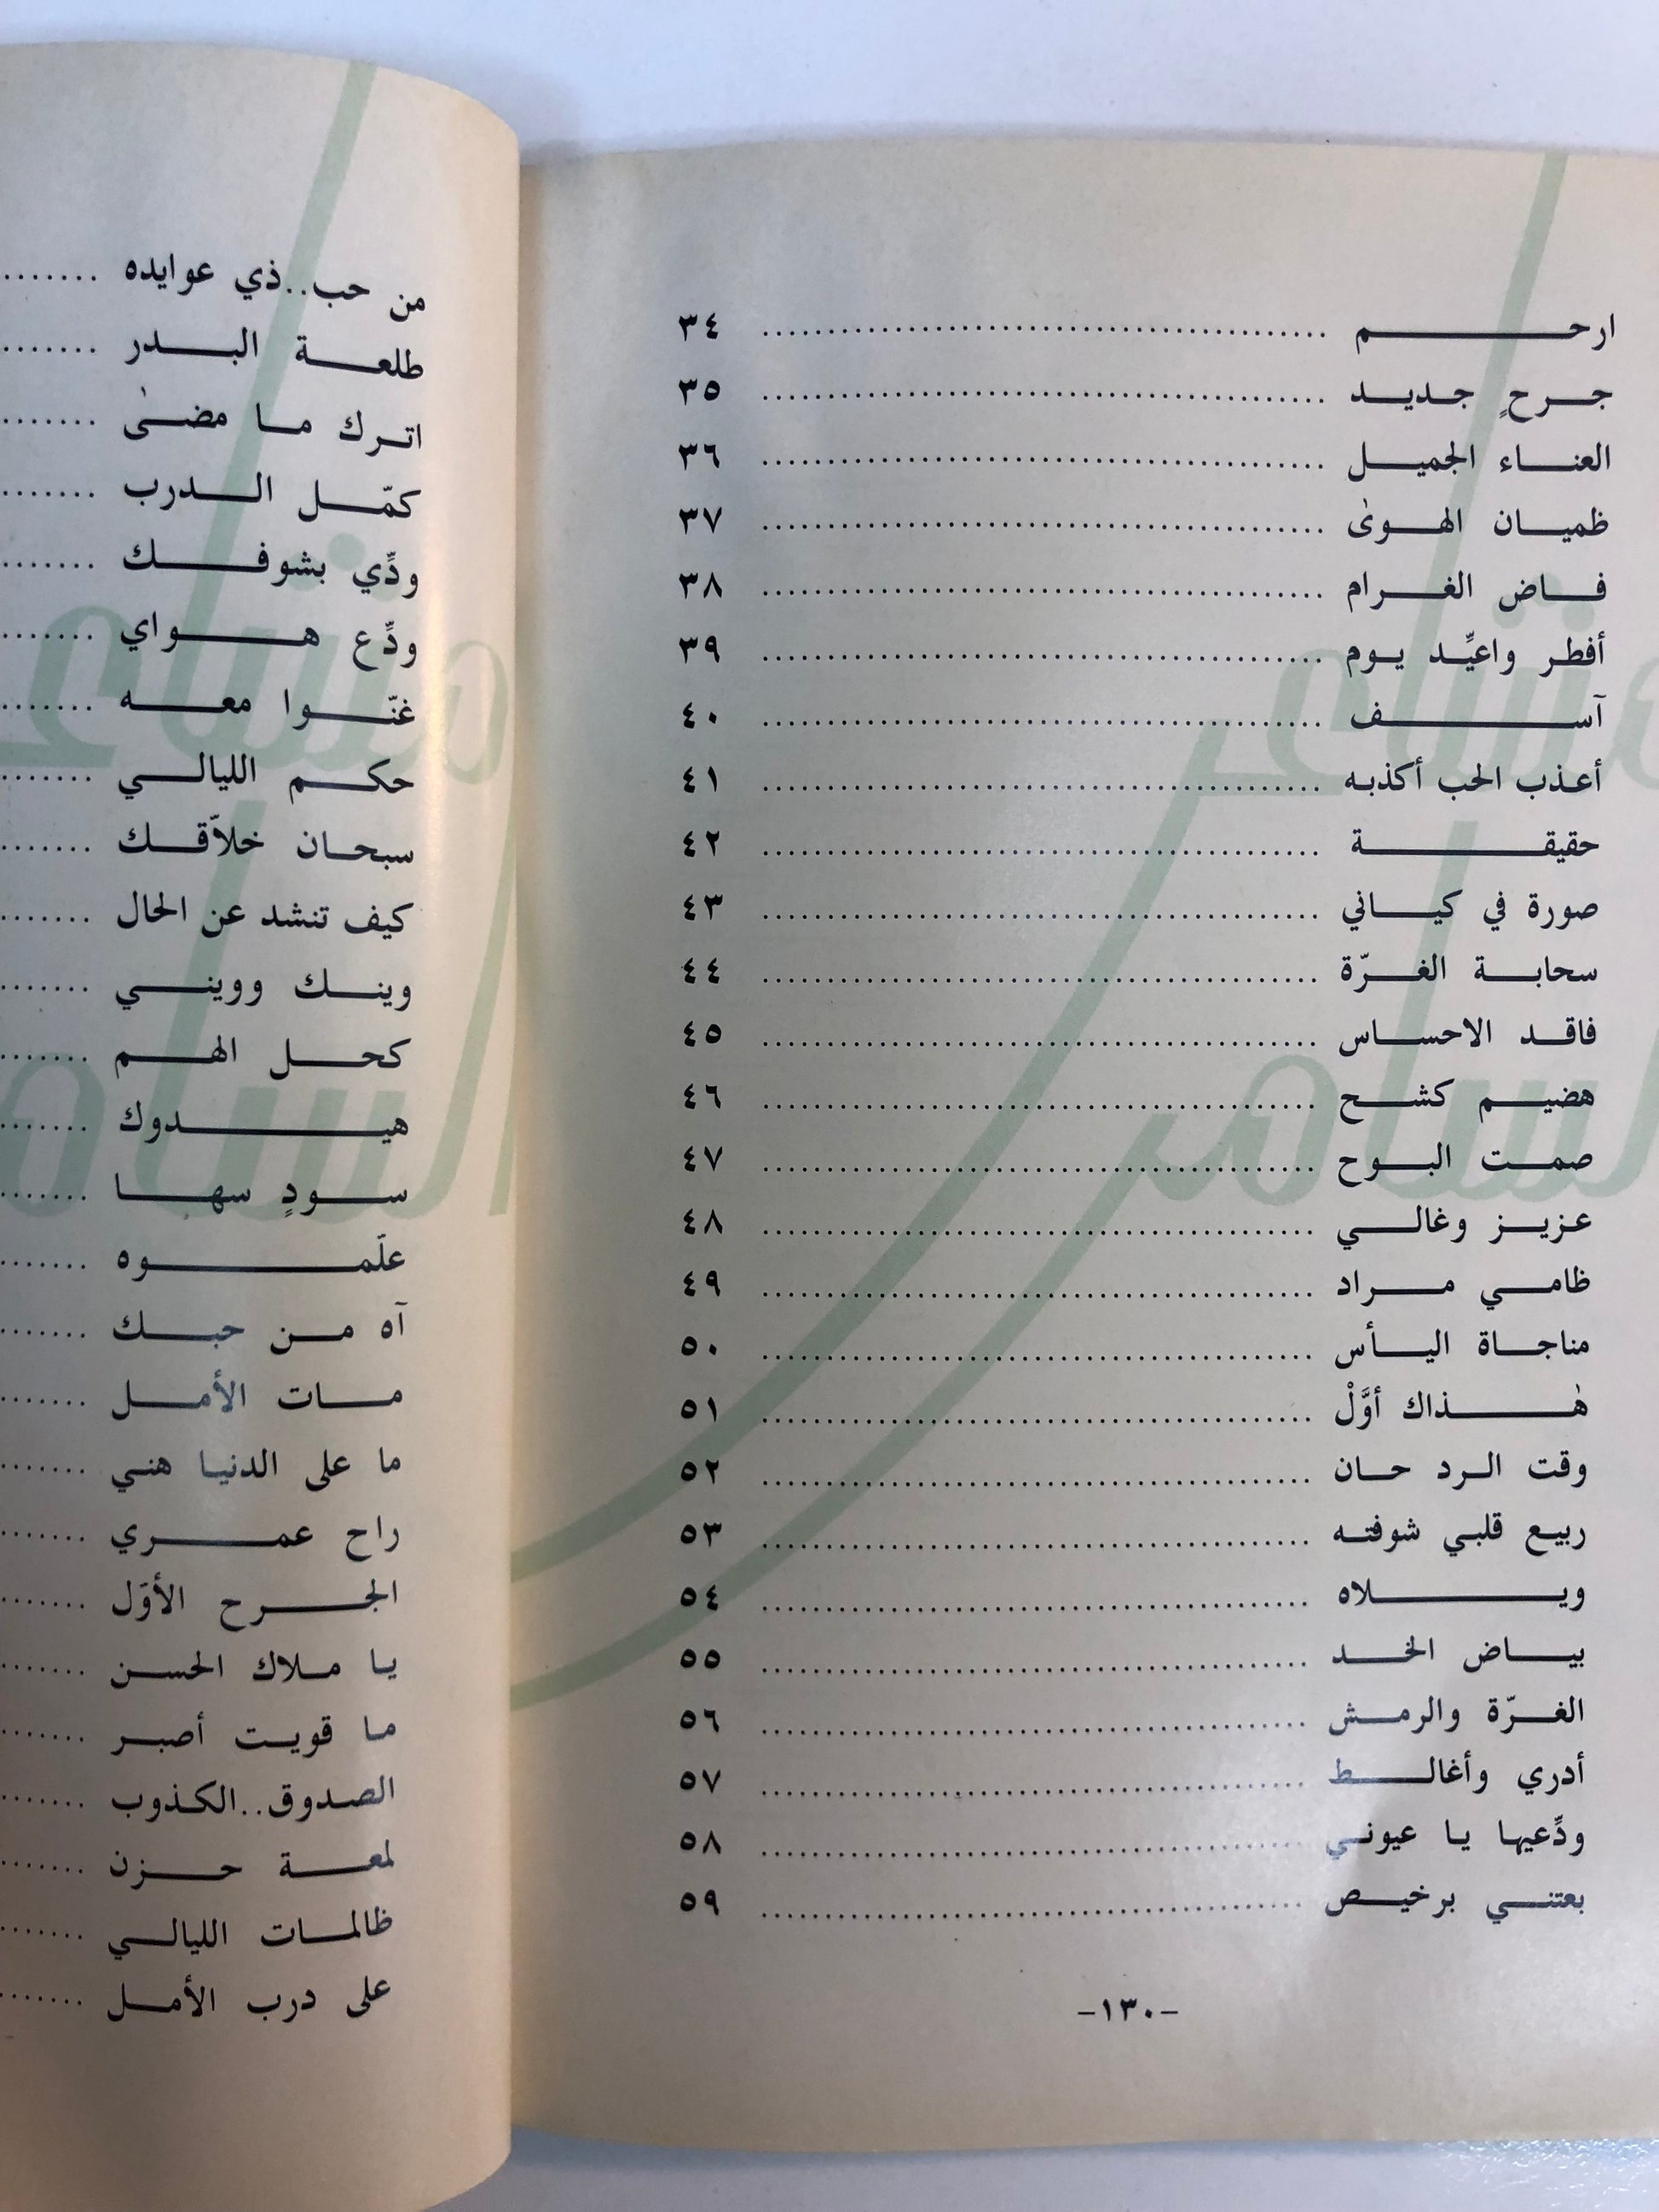 ارحم ........ ٣٤
جرحٍ جديد ........ ٣٥
العناء الجميل ........ ٣٦
ظميان الهوىٰ ........ ٣٧
فاض الغرام ........ ٣٨
أفطر واعيِّد يوم ........ ٣٩
آسف ........ ٤٠
أعذب الحب أكذبه ........ ٤١
حقيقة ........ ٤٢
صورة في كياني ........ ٤٣
سحابة الغرّة ........ ٤٤
فاقد الاحساس ........ ٤٥
هضيم كشح ........ ٤٦
صمت البوح ........ ٤٧
عزيز وغالي ........ ٤٨
ظامي مراد ........ ٤٩
مناجاة اليأس ........ ٥٠
هٰذاك أوَّلْ ........ ٥١
وقت الرد حان ........ ٥٢
ربيع قلبي شوفته ........ ٥٣
ويلاه ........ ٥٤
بياض الخد ........ ٥٥
الغرّة والرمش ........ ٥٦
أدري وأغالط ........ ٥٧
ودِّعيها يا عيوني ........ ٥٨
بعتني برخيص ........ ٥٩
-١٣٠-
من حب..ذي عوايده ........
طلعة البدر ........
اترك ما مضىٰ ........
كمّل الدرب ........
ودِّي بشوفك ........
ودِّع هواي ........
غنّوا معه ........
حكم الليالي ........
سبحان خلاّقك ........
كيف تنشد عن الحال ........
وينك وويني ........
كحل الهم ........
هيدوك ........
سودٍ سها ........
علّموه ........
آه من حبك ........
مات الأمل ........
ما على الدنيا هني ........
راح عمري ........
الجرح الأوّل ........
يا ملاك الحسن ........
ما قويت أصبر ........
الصدوق..الكذوب ........
لمعة حزن ........
ظالمات الليالي ........
على درب الأمل ........